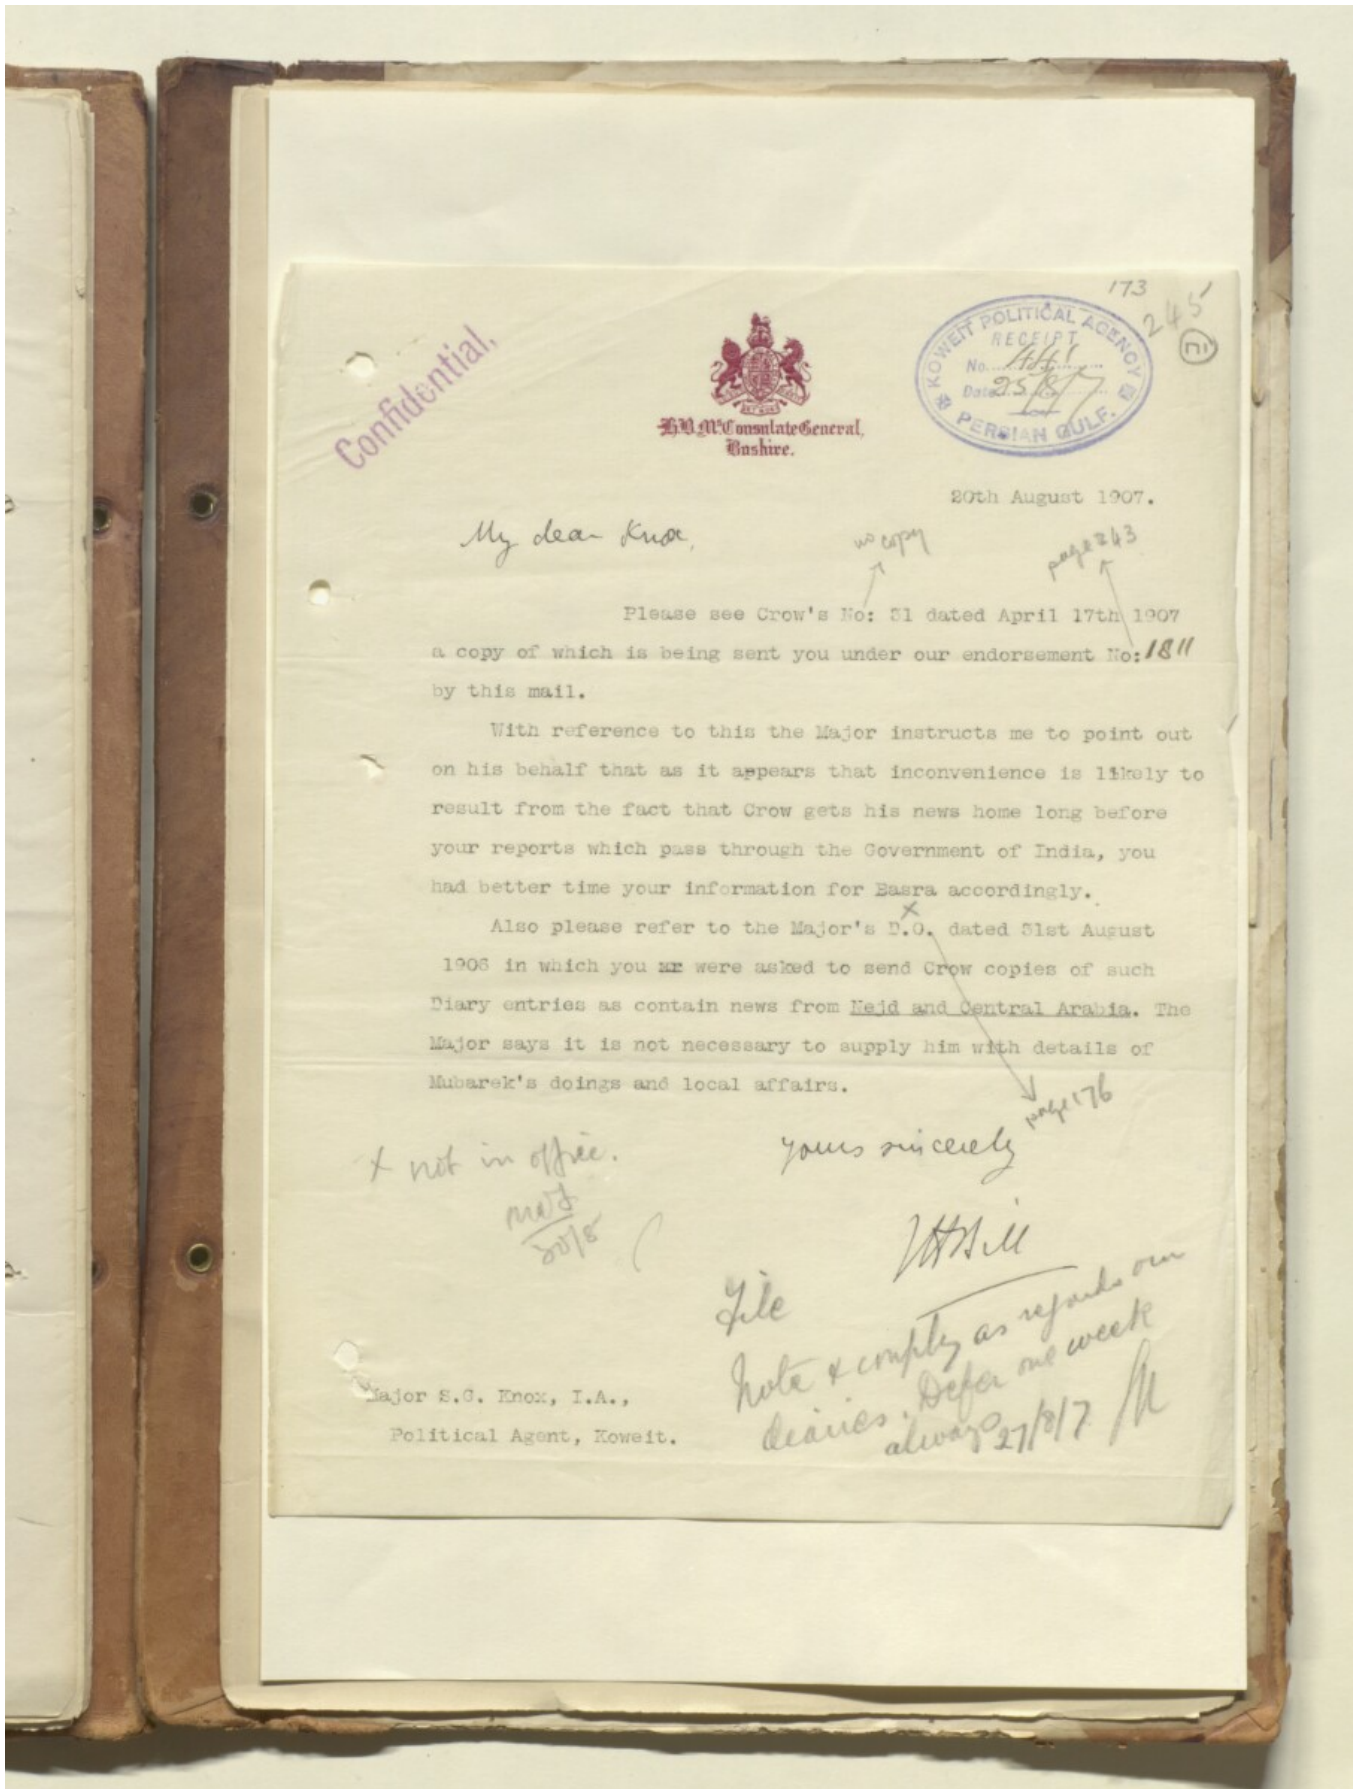 173
245
Confidential.
KOWEIT POLITICAL AGENCY
RECEIPT
No. 441
Date 25/8/7
PERSIAN GULF.
H.B.M's Consulate General,
Bushire.
20th August 1907.
My dear Knox,
no copy
page 243
Please see Crow's No: 31 dated April 17th 1907
a copy of which is being sent you under our endorsement No: 1811
by this mail.
With reference to this the Major instructs me to point out
on his behalf that as it appears that inconvenience is likely to
result from the fact that Crow gets his news home long before
your reports which pass through the Government of India, you
had better time your information for Basra accordingly.
x
Also please refer to the Major's D.O. dated 31st August
1906 in which you xr were asked to send Crow copies of such
Diary entries as contain news from Nejd and Central Arabia. The
Major says it is not necessary to supply him with details of
Mubarek's doings and local affairs.
page 176
yours sincerely
x not in office.
JHBill
File
Note & comply as regards our
diaries. Defer one week
always 27/8/7
Major S.G. Knox, I.A.,
Political Agent, Koweit.